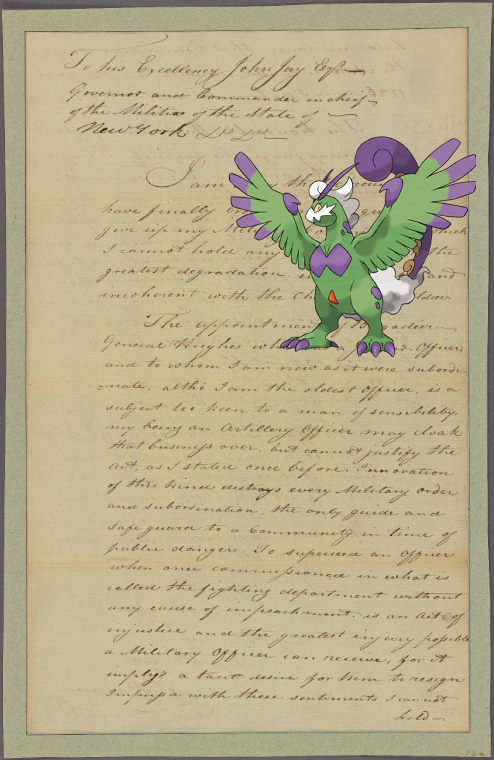 To his Excellency John Jay Esqr
Governor and Commander in chief
of the Militia of the State of
New York
I am
have finally
give up my which
I cannot hold any the
greatest degradation and
incoherent with the
The appointment Brigadier
General Hughes Officer
and to whom I am now as it were subordi=
=nate, altho I am the oldest Officer, is a
subject too keen to a man of sensibility.
my being an Artillery Officer may cloak
that business over, but cannot justify the
Act, as I stated once before. Innovation
of this kind destroys every Military order
and subordination, the only guide and
safe guard to a Community in time of
public danger. To supersede an Officer
when once commissioned in what is
called the fighting department without
any cause of impeachment, is an Act of
injustice and the greatest injury possible
a Military Officer can receive, for it
imply's a tacit desire for him to resign
Impress'd with these sentiments I cannot
hold